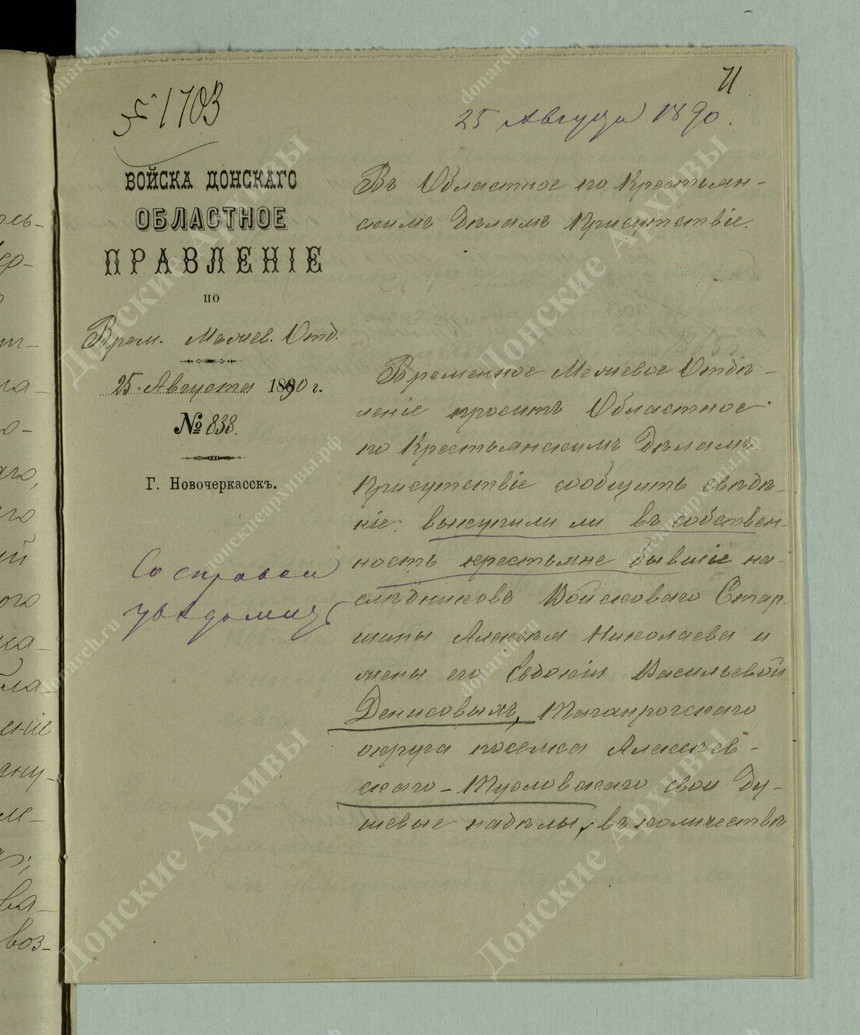 71
№ 1703
25 Августа 1890.
ВОЙСКА ДОНСКАГО
ОБЛАСТНОЕ
ПРАВЛЕНІЕ
ПО
Врем. Межев. Отд.
25 Августа 1890 г.
№ 838.
Г. Новочеркасскъ.
Въ Областное по Крестьян-
скимъ Дѣламъ Присутствіе.
Временное Межевое Отдѣ-
леніе проситъ Областное
по Крестьянскимъ Дѣламъ
Присутствіе сообщить свѣдѣ-
ніе: выкупили ли въ собствен-
ность крестьяне бывшіе на-
слѣдниковъ Войсковаго Стар-
шины Алексѣя Николаева и
жены его Евдокіи Васильевой
Денисовымъ, Таганрогскаго
округа поселка Алексѣев-
скаго-Тузловскаго свои ду-
шевые надѣлы, въ количествѣ
Со справкой
увѣдомить
Донские Архивы
donarch.ru
донскиеархивы.рф